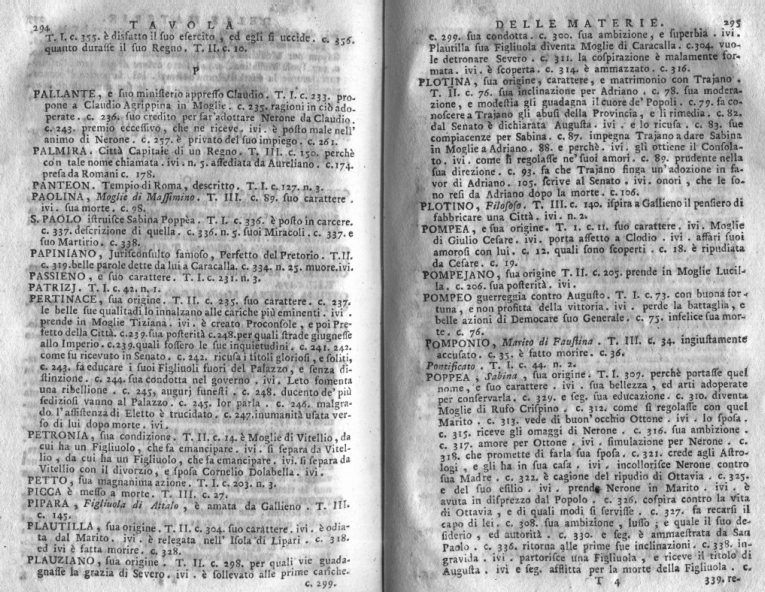 294 TAVOLA
T. I. c. 355. è disfatto il suo esercito, ed egli si uccide. c. 356.
quanto durasse il suo Regno. T. II. c. 10.
P
PALLANTE, e suo ministerio appresso Claudio. T. I. c. 233. pro-
pone a Claudio Agrippina in Moglie. c. 235. ragioni in ciò ado-
perate. c. 236. suo credito per far'adottare Nerone da Claudio.
c. 243. premio eccessivo, che ne riceve. ivi. è posto male nell'
animo di Nerone. c. 257. è privato del suo impiego. c. 261.
PALMIRA. Città Capitale di un Regno. T. III. c. 150. perchè
con tale nome chiamata. ivi. n. 5. assediata da Aureliano. c. 174.
presa da Romani c. 178.
PANTEON. Tempio di Roma, descritto. T. I. c. 127. n. 3.
PAOLINA, Moglie di Massimino. T. III. c. 89. suo carattere.
ivi. sua morte. c. 98.
S. PAOLO istruisce Sabina Poppèa. T. I. c. 336. è posto in carcere.
c. 337. descrizione di quella. c. 336. n. 5. suoi Miracoli. c. 337. e
suo Martirio. c. 338.
PAPINIANO, Jurisconsulto famoso, Perfetto del Pretorio. T. II.
c. 319. belle parole dette da lui à Caracalla. c. 334. n. 25. muore. ivi.
PASSIENO, e suo carattere. T. I. c. 231. n. 3.
PATRIZJ. T. I. c. 42. n. 1.
PERTINACE, sua origine. T. II. c. 235. suo carattere. c. 237.
le belle sue qualitadi lo innalzano alle cariche più eminenti. ivi.
prende in Moglie Tiziana. ivi. è creato Proconsole, e poi Pre-
fetto della Città. c. 239. sua posterità c. 248. per quali strade giugnesse
allo Imperio. c. 239. quali fossero le sue inquietudini. c. 241. 242.
come fu ricevuto in Senato. c. 242. ricusa i titoli gloriosi, e soliti,
c. 243. fa educare i suoi Figliuoli fuori del Palazzo, e senza di-
stinzione. c. 244. sua condotta nel governo. ivi. Leto fomenta
una ribellione. c. 245. augurj funesti. c. 248. ducento de' più
sediziosi vanno al Palazzo. c. 245. lor parla. c. 246. malgra-
do l'assistenza di Eletto è trucidato. c. 247. inumanità usata ver-
so di lui dopo morte. ivi.
PETRONIA, sua condizione. T. II. c. 14. è Moglie di Vitellio, da
cui ha un Figliuolo, che fa emancipare. ivi. si separa da Vitel-
lio, da cui ha un Figliuolo, che fa emancipare. ivi. si separa da
Vitellio con il divorzio, e sposa Cornelio Dolabella. ivi.
PETTO, sua magnanima azione. T. I. c. 203. n. 3.
PICCA è messo a morte. T. III. c. 27.
PIPARA, Figliuola di Attalo, è amata da Gallieno. T. III.
c. 145.
PLAUTILLA, sua origine. T. II. c. 304. suo carattere. ivi. è odia-
ta dal Marito. ivi. è relegata nell' Isola di Lipari. c. 318.
ed ivi è fatta morire. c. 328.
PLAUZIANO, sua origine. T. II. c. 298. per quali vie guada-
gnasse la grazia di Severo. ivi. è sollevato alle prime cariche.
c. 299.
DELLE MATERIE. 295
c. 299. sua condotta. c. 300. sua ambizione, e superbia. ivi.
Plautilla sua Figliuola diventa Moglie di Caracalla. c. 304. vuo-
le detronare Severo. c. 311. la cospirazione è malamente for-
mata. ivi. è scoperta. c. 314. è ammazzato. c. 316.
PLOTINA, sua origine, carattere, e matrimonio con Trajano.
T. II. c. 76. sua inclinazione per Adriano. c. 78. sua modera-
zione, e modestia gli guadagna il cuore de' Popoli. c. 79. fa co-
noscere a Trajano gli abusi della Provincia, e li rimedia. c. 82.
dal Senato è dichiarata Augusta. ivi. e lo ricusa. c. 83. sue
compiacenze per Sabina. c. 87. impegna Trajano a dare Sabina
in Moglie a Adriano. 88. e perchè. ivi. gli ottiene il Consola-
to. ivi. come si regolasse ne' suoi amori. c. 89. prudente nella
sua direzione. c. 93. fa che Trajano finga un'adozione in fa-
vor di Adriano. 105. scrive al Senato. ivi. onori, che le so-
no resi da Adriano dopo la morte. c. 106.
PLOTINO, Filosofo. T. III. c. 140. ispira a Gallieno il pensiero di
fabbricare una Città. ivi. n. 2.
POMPEA, e sua origine. T. I. c. 11. suo carattere. ivi. Moglie
di Giulio Cesare. ivi. porta affetto a Clodio. ivi. affari suoi
amorosi con lui. c. 12. quali sono scoperti. c. 18. è ripudiata
da Cesare. c. 19.
POMPEJANO, sua origine T. II. c. 205. prende in Moglie Lucil-
la. c. 206. sua posterità. ivi.
POMPEO guerreggia contro Augusto. T. I. c. 73. con buona for-
tuna, e non profitta della vittoria. ivi. perde la battaglia, e
belle azioni di Democare suo Generale. c. 75. infelice sua mor-
te. c. 76.
POMPONIO, Marito di Faustina. T. III. c. 34. ingiustamente
accusato. c. 35. è fatto morire. c. 36.
Pontificato. T. I. c. 44. n. 2.
POPPEA, Sabina, sua origine. T. I. 307. perchè portasse quel
nome, e suo carattere. ivi. sua bellezza, ed arti adoperate
per conservarla. c. 329. e seg. sua educazione. c. 310. diventa
Moglie di Rufo Crispino. c. 312. come si regolasse con quel
Marito. c. 313. vede di buon'occhio Ottone. ivi. lo sposa.
c. 315. riceve gli omaggi di Nerone. c. 316. sua ambizione.
c. 317. amore per Ottone. ivi. simulazione per Nerone. c.
318. che promette di farla sua sposa. c. 321. crede agli Astro-
logi, e gli ha in sua casa. ivi. incollorisce Nerone contro
sua Madre. c. 322. è cagione del ripudio di Ottavia. c. 325.
e del suo esilio. ivi. prende Nerone in Marito. ivi. è
avuta in disprezzo dal Popolo. c. 326. cospira contro la vita
di Ottavia, e di quali modi si servisse. c. 327. fa recarsi il
capo di lei. c. 308. sua ambizione, lusso; e quale il suo de-
siderio, ed autorità. c. 330. e seg. è ammaestrata da San
Paolo. c. 336. ritorna alle prime sue inclinazioni. c. 338. in-
gravida. ivi. partorisce una Figliuola, e riceve il titolo di
Augusta. ivi e seg. afflitta per la morte della Figliuola. c.
T 4 339. re-